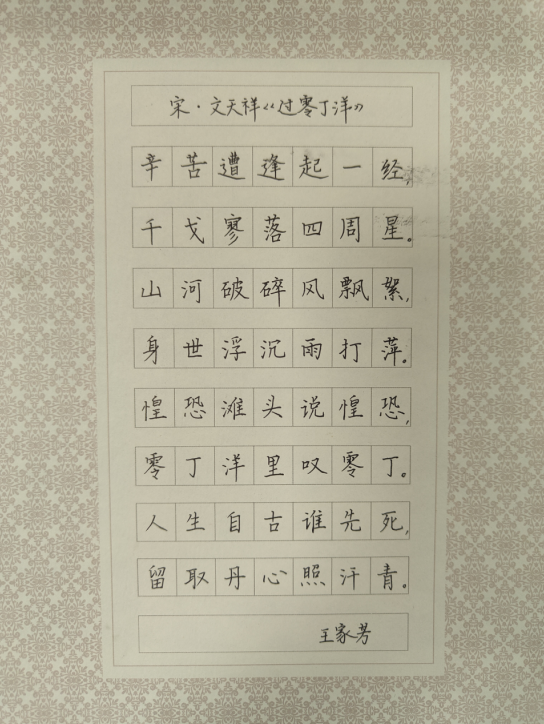 宋·文天祥《过零丁洋》
辛苦遭逢起一经,
干戈寥落四周星。
山河破碎风飘絮,
身世浮沉雨打萍。
惶恐滩头说惶恐,
零丁洋里叹零丁。
人生自古谁先死,
留取丹心照汗青。
王家芳